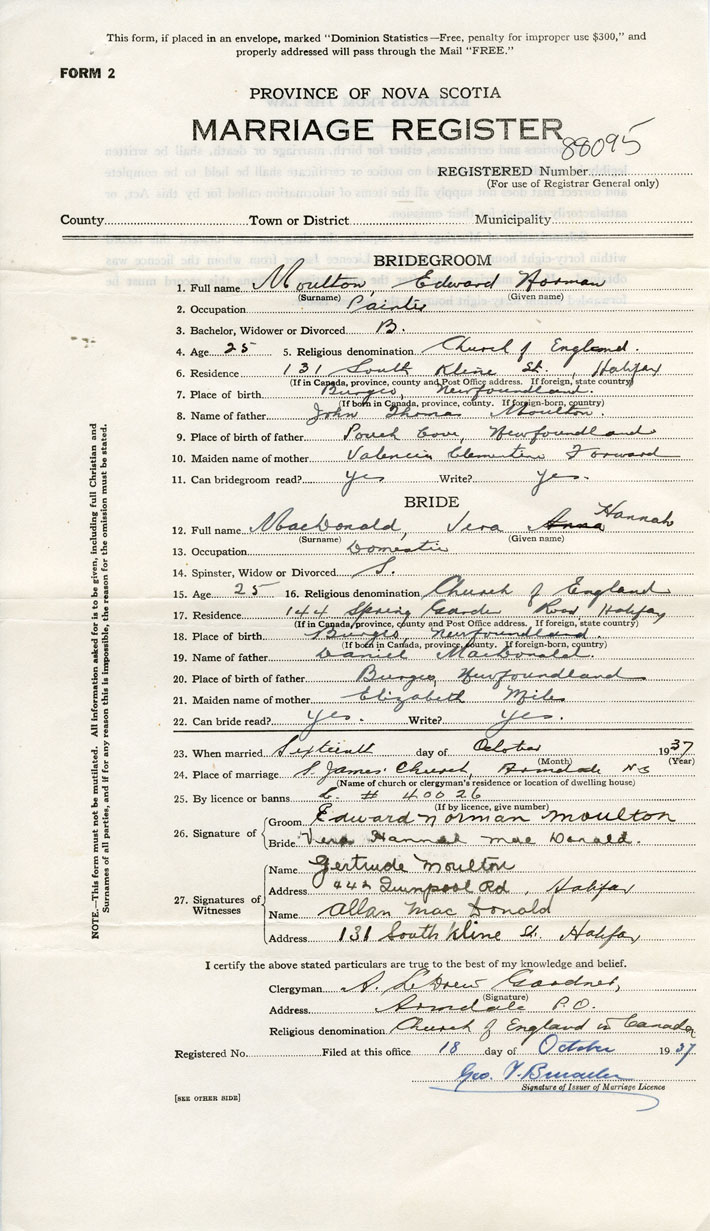 This form, if placed in an envelope, marked "Dominion Statistics—Free, penalty for improper use $300," and
properly addressed will pass through the Mail "FREE."
FORM 2
PROVINCE OF NOVA SCOTIA
MARRIAGE REGISTER
88095
REGISTERED Number
(For use of Registrar General only)
County Town or District Municipality
BRIDEGROOM
1. Full name Moulton, Edward Norman
(Surname) (Given name)
2. Occupation Painter
3. Bachelor, Widower or Divorced B.
4. Age 25 5. Religious denomination Church of England.
6. Residence 131 South Kline St., Halifax
(If in Canada, province, county and Post Office address. If foreign, state country)
7. Place of birth Burgeo, Newfoundland.
(If born in Canada, province, county. If foreign-born, country)
8. Name of father John Thomas Moulton.
9. Place of birth of father Pouch Cove, Newfoundland
10. Maiden name of mother Valencia Clementine Forward
11. Can bridegroom read? Yes Write? Yes.
BRIDE
12. Full name MacDonald, Vera Anna Hannah
(Surname) (Given name)
13. Occupation Domestic
14. Spinster, Widow or Divorced S.
15. Age 25 16. Religious denomination Church of England
17. Residence 144 Spring Garden Road, Halifax
(If in Canada, province, county and Post Office address. If foreign, state country)
18. Place of birth Burgeo, Newfoundland.
(If born in Canada, province, county. If foreign-born, country)
19. Name of father Daniel MacDonald.
20. Place of birth of father Burgeo, Newfoundland
21. Maiden name of mother Elizabeth Miles
22. Can bride read? Yes. Write? Yes.
23. When married Sixteenth day of October 1937
(Month) (Year)
24. Place of marriage S. James' Church, Armdale NS
(Name of church or clergyman's residence or location of dwelling house)
25. By licence or banns L. # 40026
(If by licence, give number)
26. Signature of Groom Edward Norman Moulton
Bride Vera Hannah Mac Donald.
27. Signatures of Witnesses
Name Gertrude Moulton
Address Quinpool Rd, Halifax
Name Allan Mac Donald
Address 131 South Kline St. Halifax
I certify the above stated particulars are true to the best of my knowledge and belief.
Clergyman A. LeDrew Gardner,
(Signature)
Address Armdale P.O.
Religious denomination Church of England in Canada
Registered No. Filed at this office 18 day of October 1937
Geo. V.
Signature of Issuer of Marriage Licence
[SEE OTHER SIDE]
NOTE.—This form must not be mutilated. All information asked for is to be given, including full Christian and
Surnames of all parties, and if for any reason this is impossible, the reason for the omission must be stated.